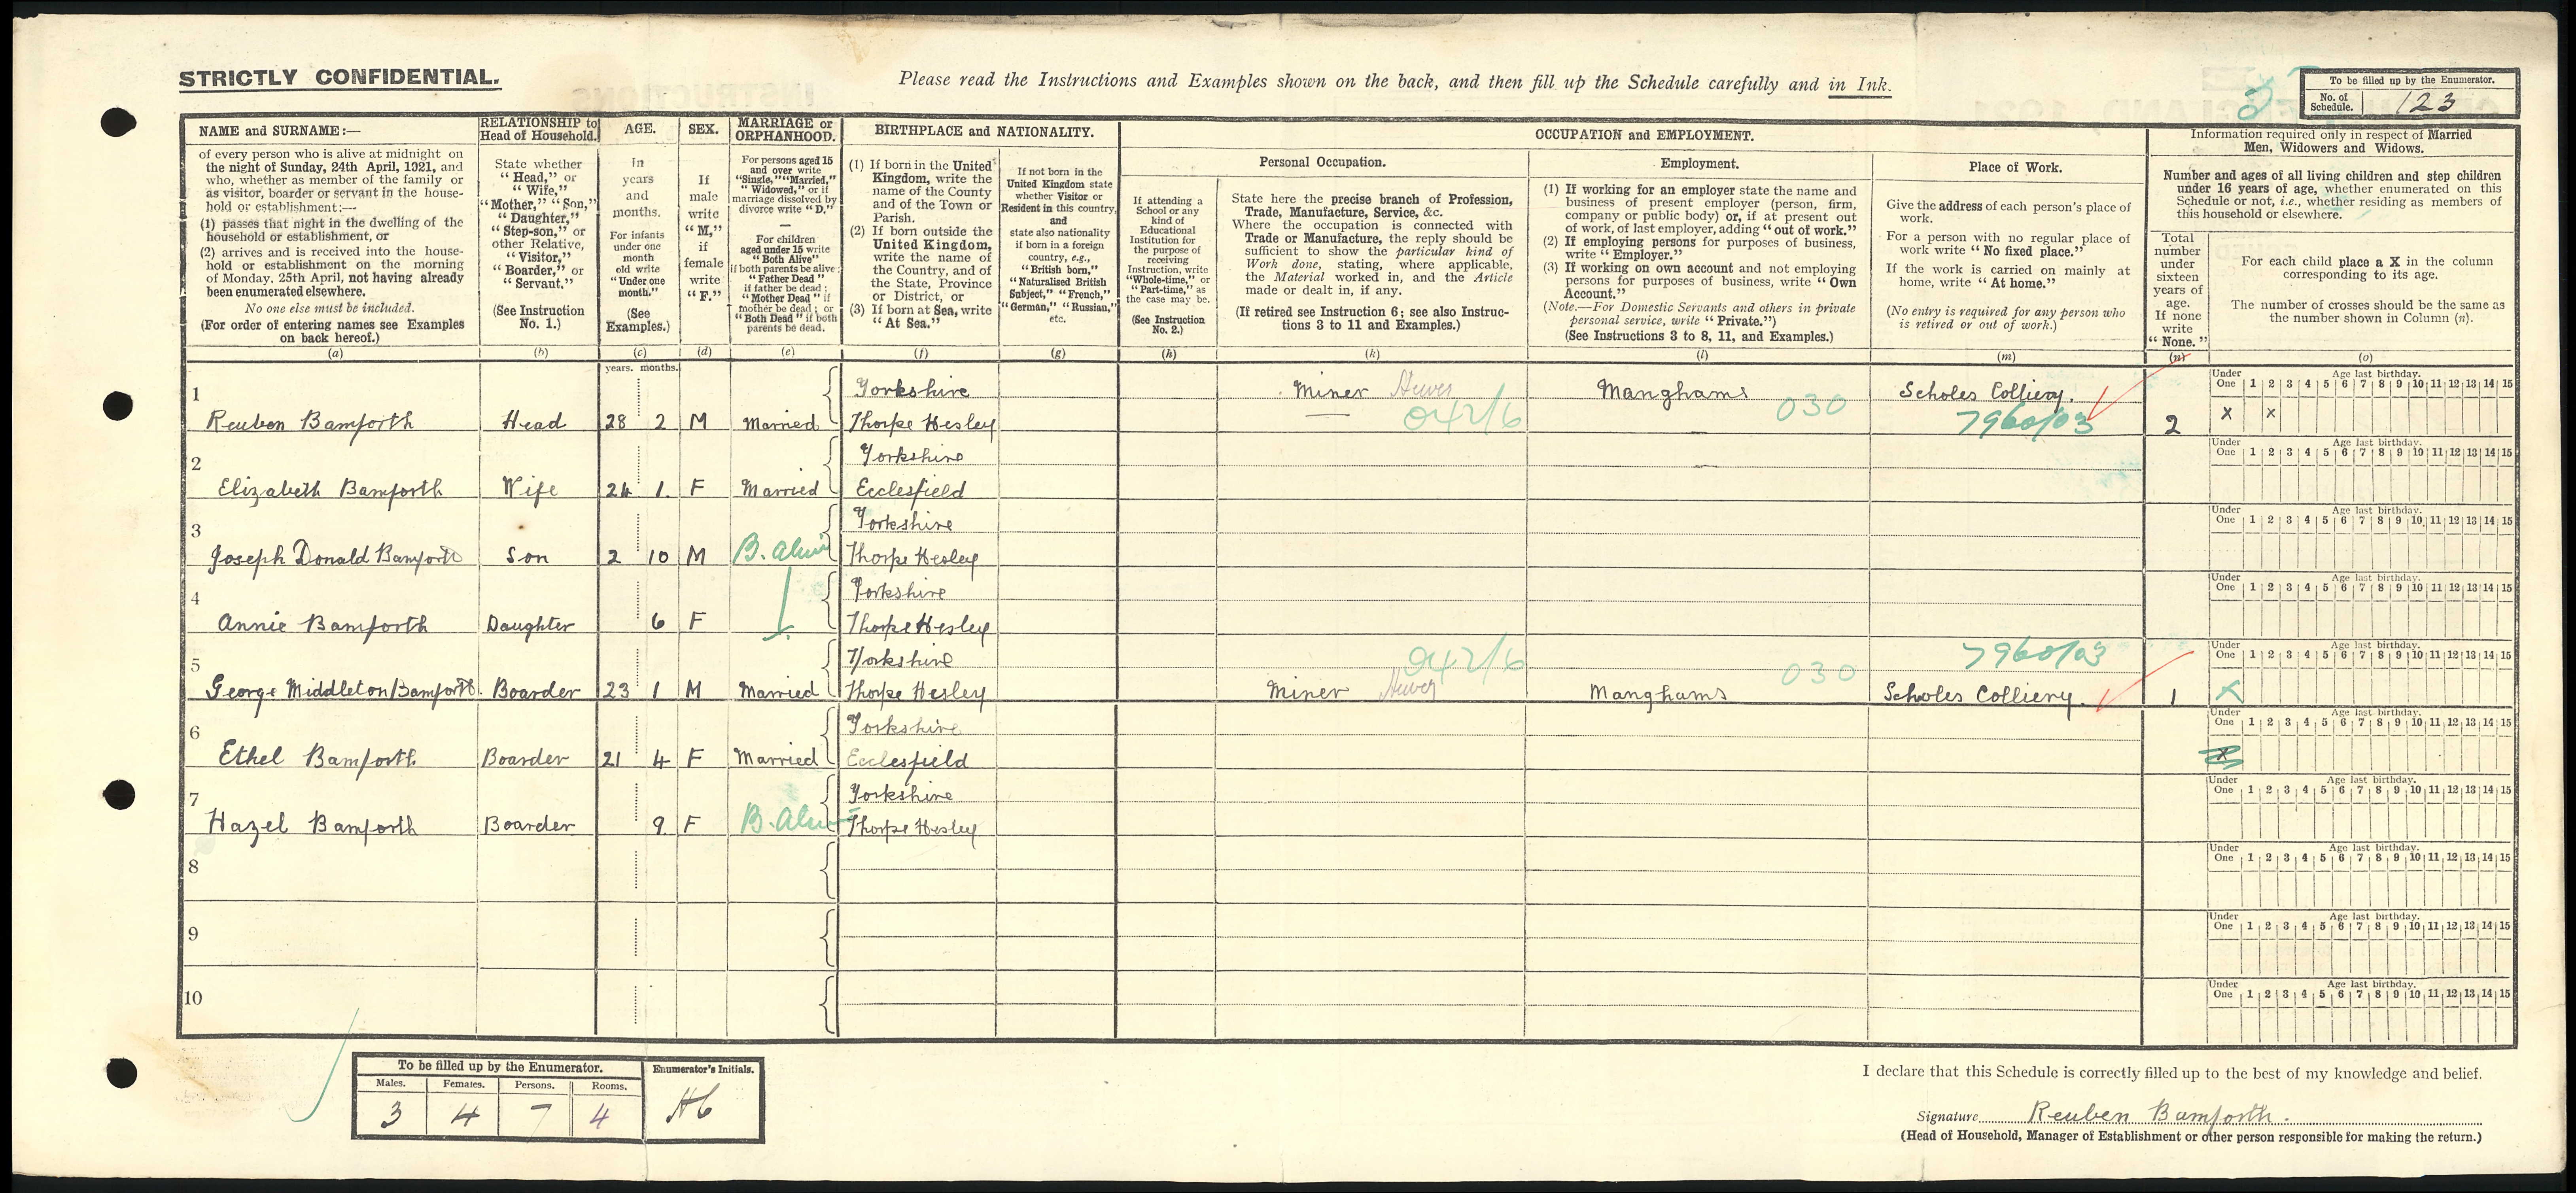 STRICTLY CONFIDENTIAL.
Please read the Instructions and Examples shown on the back, and then fill up the Schedule carefully and in Ink.
To be filled up by the Enumerator.
No. of Schedule. 123
NAME and SURNAME:—
of every person who is alive at midnight on
the night of Sunday, 24th April, 1921, and
who, whether as member of the family or
as visitor, boarder or servant in the house-
hold or establishment:—
(1) passes that night in the dwelling of the
household or establishment, or
(2) arrives and is received into the house-
hold or establishment on the morning
of Monday, 25th April, not having already
been enumerated elsewhere.
No one else must be included.
(For order of entering names see Examples
on back hereof.)
(a)
RELATIONSHIP to
Head of Household.
State whether
"Head," or
"Wife,"
"Mother," "Son,"
"Daughter,"
"Step-son," or
other Relative,
"Visitor,"
"Boarder," or
"Servant."
(See Instruction
No. 1.)
(b)
AGE.
in
years
and
months.
For infants
under one
month
old write
"Under one
month."
(See
Examples.)
(c)
SEX.
If
male
write
"M,"
if
female
write
"F."
(d)
MARRIAGE or
ORPHANHOOD.
For persons aged 15
and over write
"Single," "Married,"
"Widowed," or if
marriage dissolved by
divorce write "D."
—
For children
aged under 15 write
"Both Alive"
if both parents be alive;
"Father Dead"
if father be dead;
"Mother Dead" if
mother be dead; or
"Both Dead" if both
parents be dead.
(e)
BIRTHPLACE and NATIONALITY.
(1) If born in the United
Kingdom, write the
name of the County
and of the Town or
Parish.
(2) If born outside the
United Kingdom,
write the name of
the Country, and of
the State, Province
or District, or
(3) If born at Sea, write
"At Sea."
(f)
If not born in the
United Kingdom state
whether Visitor or
Resident in this country,
and
state also nationality
if born in a foreign
country, e.g.,
"British born,"
"Naturalised British
Subject," "French,"
"German," "Russian,"
etc.
(g)
OCCUPATION and EMPLOYMENT.
If attending a
School or any
kind of
Educational
Institution for
the purpose of
receiving
Instruction, write
"Whole-time," or
"Part-time," as
the case may be.
(See Instruction
No. 2.)
(h)
Personal Occupation.
State here the precise branch of Profession,
Trade, Manufacture, Service, &c.
Where the occupation is connected with
Trade or Manufacture, the reply should be
sufficient to show the particular kind of
Work done, stating, where applicable,
the Material worked in, and the Article
made or dealt in, if any.
(If retired see Instruction 6; see also Instruc-
tions 3 to 11 and Examples.)
(k)
Employment.
(1) If working for an employer state the name and
business of present employer (person, firm,
company or public body) or, if at present out
of work, of last employer, adding "out of work."
(2) If employing persons for purposes of business,
write "Employer."
(3) If working on own account and not employing
persons for purposes of business, write "Own
Account."
(Note.—For Domestic Servants and others in private
personal service, write "Private.")
(See Instructions 3 to 8, 11, and Examples.)
(l)
Place of Work.
Give the address of each person's place of
work.
For a person with no regular place of
work write "No fixed place."
If the work is carried on mainly at
home, write "At home."
(No entry is required for any person who
is retired or out of work.)
(m)
Information required only in respect of Married
Men, Widowers and Widows.
Number and ages of all living children and step children
under 16 years of age, whether enumerated on this
Schedule or not, i.e., whether residing as members of
this household or elsewhere.
Total
number
under
sixteen
years of
age.
If none
write
"None."
(n)
For each child place a X in the column
corresponding to its age.
The number of crosses should be the same as
the number shown in Column (n).
(o)
years. months.
Under Age last birthday.
One 1 2 3 4 5 6 7 8 9 10 11 12 13 14 15
1 Yorkshire Miner Hewer Manghams Scholes Colliery.
Reuben Bamforth Head 28 2 M Married Thorpe Hesley 042/6 030 7960/03 2 X X
Under Age last birthday.
One 1 2 3 4 5 6 7 8 9 10 11 12 13 14 15
2 Yorkshire
Elizabeth Bamforth Wife 24 1. F Married Ecclesfield
Under Age last birthday.
One 1 2 3 4 5 6 7 8 9 10 11 12 13 14 15
3 Yorkshire
Joseph Donald Bamforth Son 2 10 M B. Alive Thorpe Hesley
Under Age last birthday.
One 1 2 3 4 5 6 7 8 9 10 11 12 13 14 15
4 Yorkshire
Annie Bamforth Daughter 6 F Thorpe Hesley
Under Age last birthday.
One 1 2 3 4 5 6 7 8 9 10 11 12 13 14 15
5 Yorkshire 042/6 030 7960/03
George Middleton Bamforth. Boarder 23 1 M Married Thorpe Hesley Miner Hewer Manghams Scholes Colliery. 1 X
Under Age last birthday.
One 1 2 3 4 5 6 7 8 9 10 11 12 13 14 15
6 Yorkshire
Ethel Bamforth. Boarder 21 4 F Married Ecclesfield X
Under Age last birthday.
One 1 2 3 4 5 6 7 8 9 10 11 12 13 14 15
7 Yorkshire
Hazel Bamforth Boarder 9. F B. Alive Thorpe Hesley
Under Age last birthday.
One 1 2 3 4 5 6 7 8 9 10 11 12 13 14 15
8
Under Age last birthday.
One 1 2 3 4 5 6 7 8 9 10 11 12 13 14 15
9
Under Age last birthday.
One 1 2 3 4 5 6 7 8 9 10 11 12 13 14 15
10
To be filled up by the Enumerator.
Males. Females. Persons. Rooms.
3 4 7 4
Enumerator's Initials.
I declare that this Schedule is correctly filled up to the best of my knowledge and belief.
Signature Reuben Bamforth.
(Head of Household, Manager of Establishment or other person responsible for making the return.)